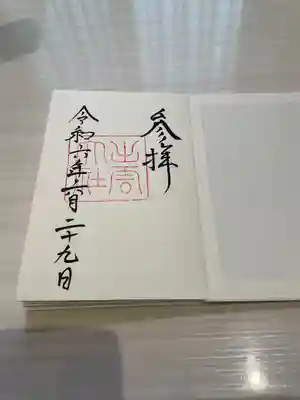 参拝
令和六年六月二十九日